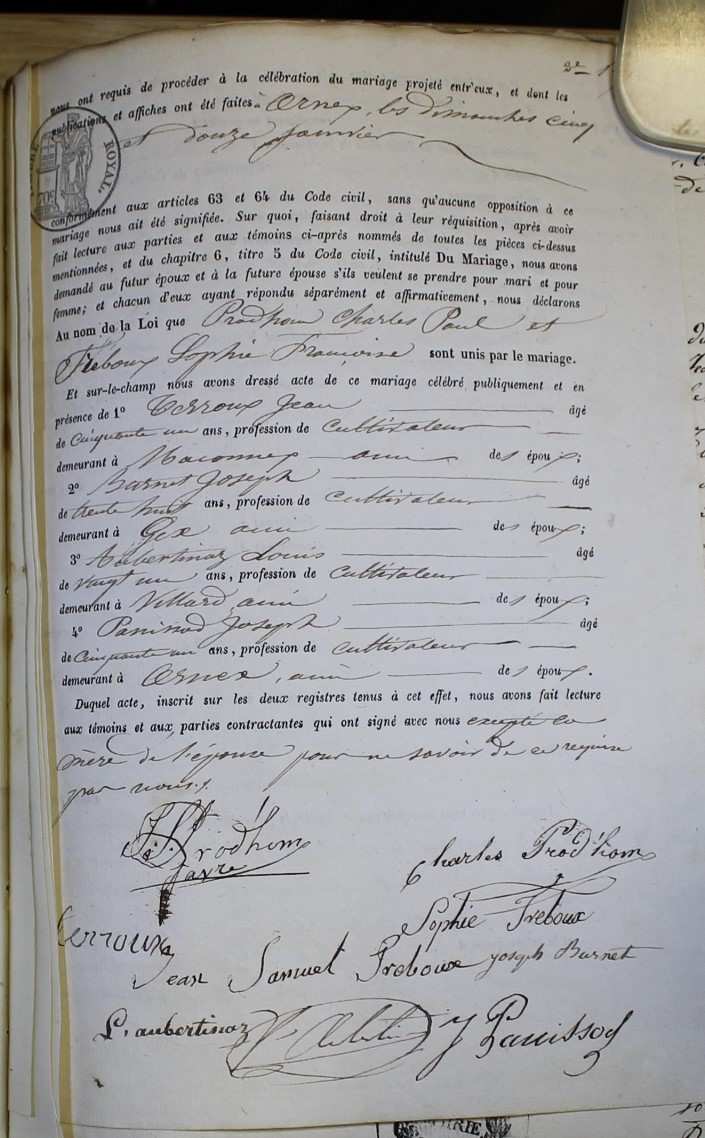 2e
nous ont requis de procéder à la célébration du mariage projeté entr'eux, et dont les
publications et affiches ont été faites à Ornex, les dimanches cinq
et douze janvier
ROYAL.
conformément aux articles 63 et 64 du Code civil, sans qu'aucune opposition à ce
mariage nous ait été signifiée. Sur quoi, faisant droit à leur réquisition, après avoir
fait lecture aux parties et aux témoins ci-après nommés de toutes les pièces ci-dessus
mentionnées, et du chapitre 6, titre 5 du Code civil, intitulé Du Mariage, nous avons
demandé au futur époux et à la future épouse s'ils veulent se prendre pour mari et pour
femme; et chacun d'eux ayant répondu séparément et affirmativement, nous déclarons
Au nom de la Loi que Prodhom Charles Paul et
Treboux Sophie Françoise sont unis par le mariage.
Et sur-le-champ nous avons dressé acte de ce mariage célébré publiquement et en
présence de 1° Terroux Jean âgé
de Cinquante un ans, profession de cultivateur
demeurant à Maconnex ami des époux;
2° Burnet Joseph âgé
de trente huit ans, profession de cultivateur
demeurant à Gex ami des époux;
3° Aubertinaz Louis âgé
de vingt un ans, profession de cultivateur
demeurant à Villard, ami des époux;
4° Panissod Joseph âgé
de Cinquante un ans, profession de cultivateur
demeurant à Ornex, ami des époux.
Duquel acte, inscrit sur les deux registres tenus à cet effet, nous avons fait lecture
aux témoins et aux parties contractantes qui ont signé avec nous excepté la
mère de l'épouse pour ne savoir de ce requise
par nous.
Prodhom
Favre
Charles Prod'hom
Sophie Treboux
Terroux
Jean Samuel Treboux Joseph Burnet
L. aubertinaz
J Panissod